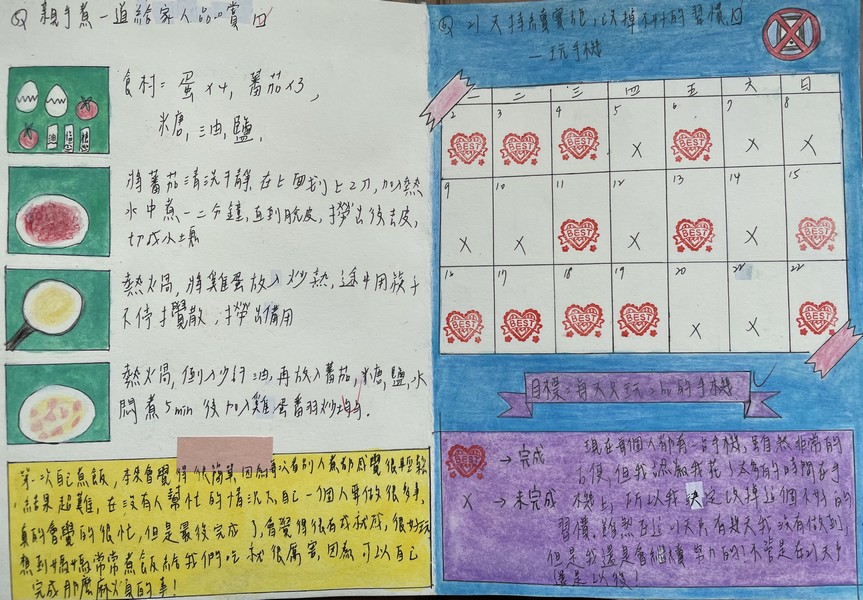 親手煮一道給家人品賞
食材=蛋x4, 蕃茄x3,
糖, 油, 鹽,
將蕃茄清洗干靜, 在上面划上2刀, 加熱
水中煮一二分鐘, 直到脫皮, 撈出後去皮,
切成小塊
熱火鍋, 將雞蛋放入炒熱, 途中用筷子
不停攪散, 撈出備用
熱火鍋, 倒入少許油, 再放入蕃茄, 糖, 鹽, 水
悶煮5min後加入雞蛋番羽炒均.
第一次自己煮飯, 本來會覺得很簡單, 因為每次看別人煮都感覺很輕鬆
結果超難, 在沒有人幫忙的情況下, 自己一個人要做很多事,
真的會覺的很忙, 但是最後完成了, 會覺得很有成就感, 很好玩
想到媽媽常常煮飯給我們吃就很厲害, 因為可以自己
完成那麼麻火頁的事!
21天持續實踐, 改掉不好的習慣
—玩手機
一 二 三 四 五 六 日
2 3 4 5 6 7 8
BEST BEST BEST X BEST X X
9 10 11 12 13 14 15
X X BEST X BEST X BEST
16 17 18 19 20 21 22
BEST BEST BEST BEST X X BEST
目標:每天只玩 的手機
BEST → 完成
X → 未完成
現在每個人都有一台手機, 雖自然非常的
方便, 但我認為我花了太多的時間在手
機上, 所以我決定改掉這個不好的
習慣, 雖然在這21天內有幾天我沒有做到,
但是我還是會繼續努力的!不管是在21天中
還是以後!